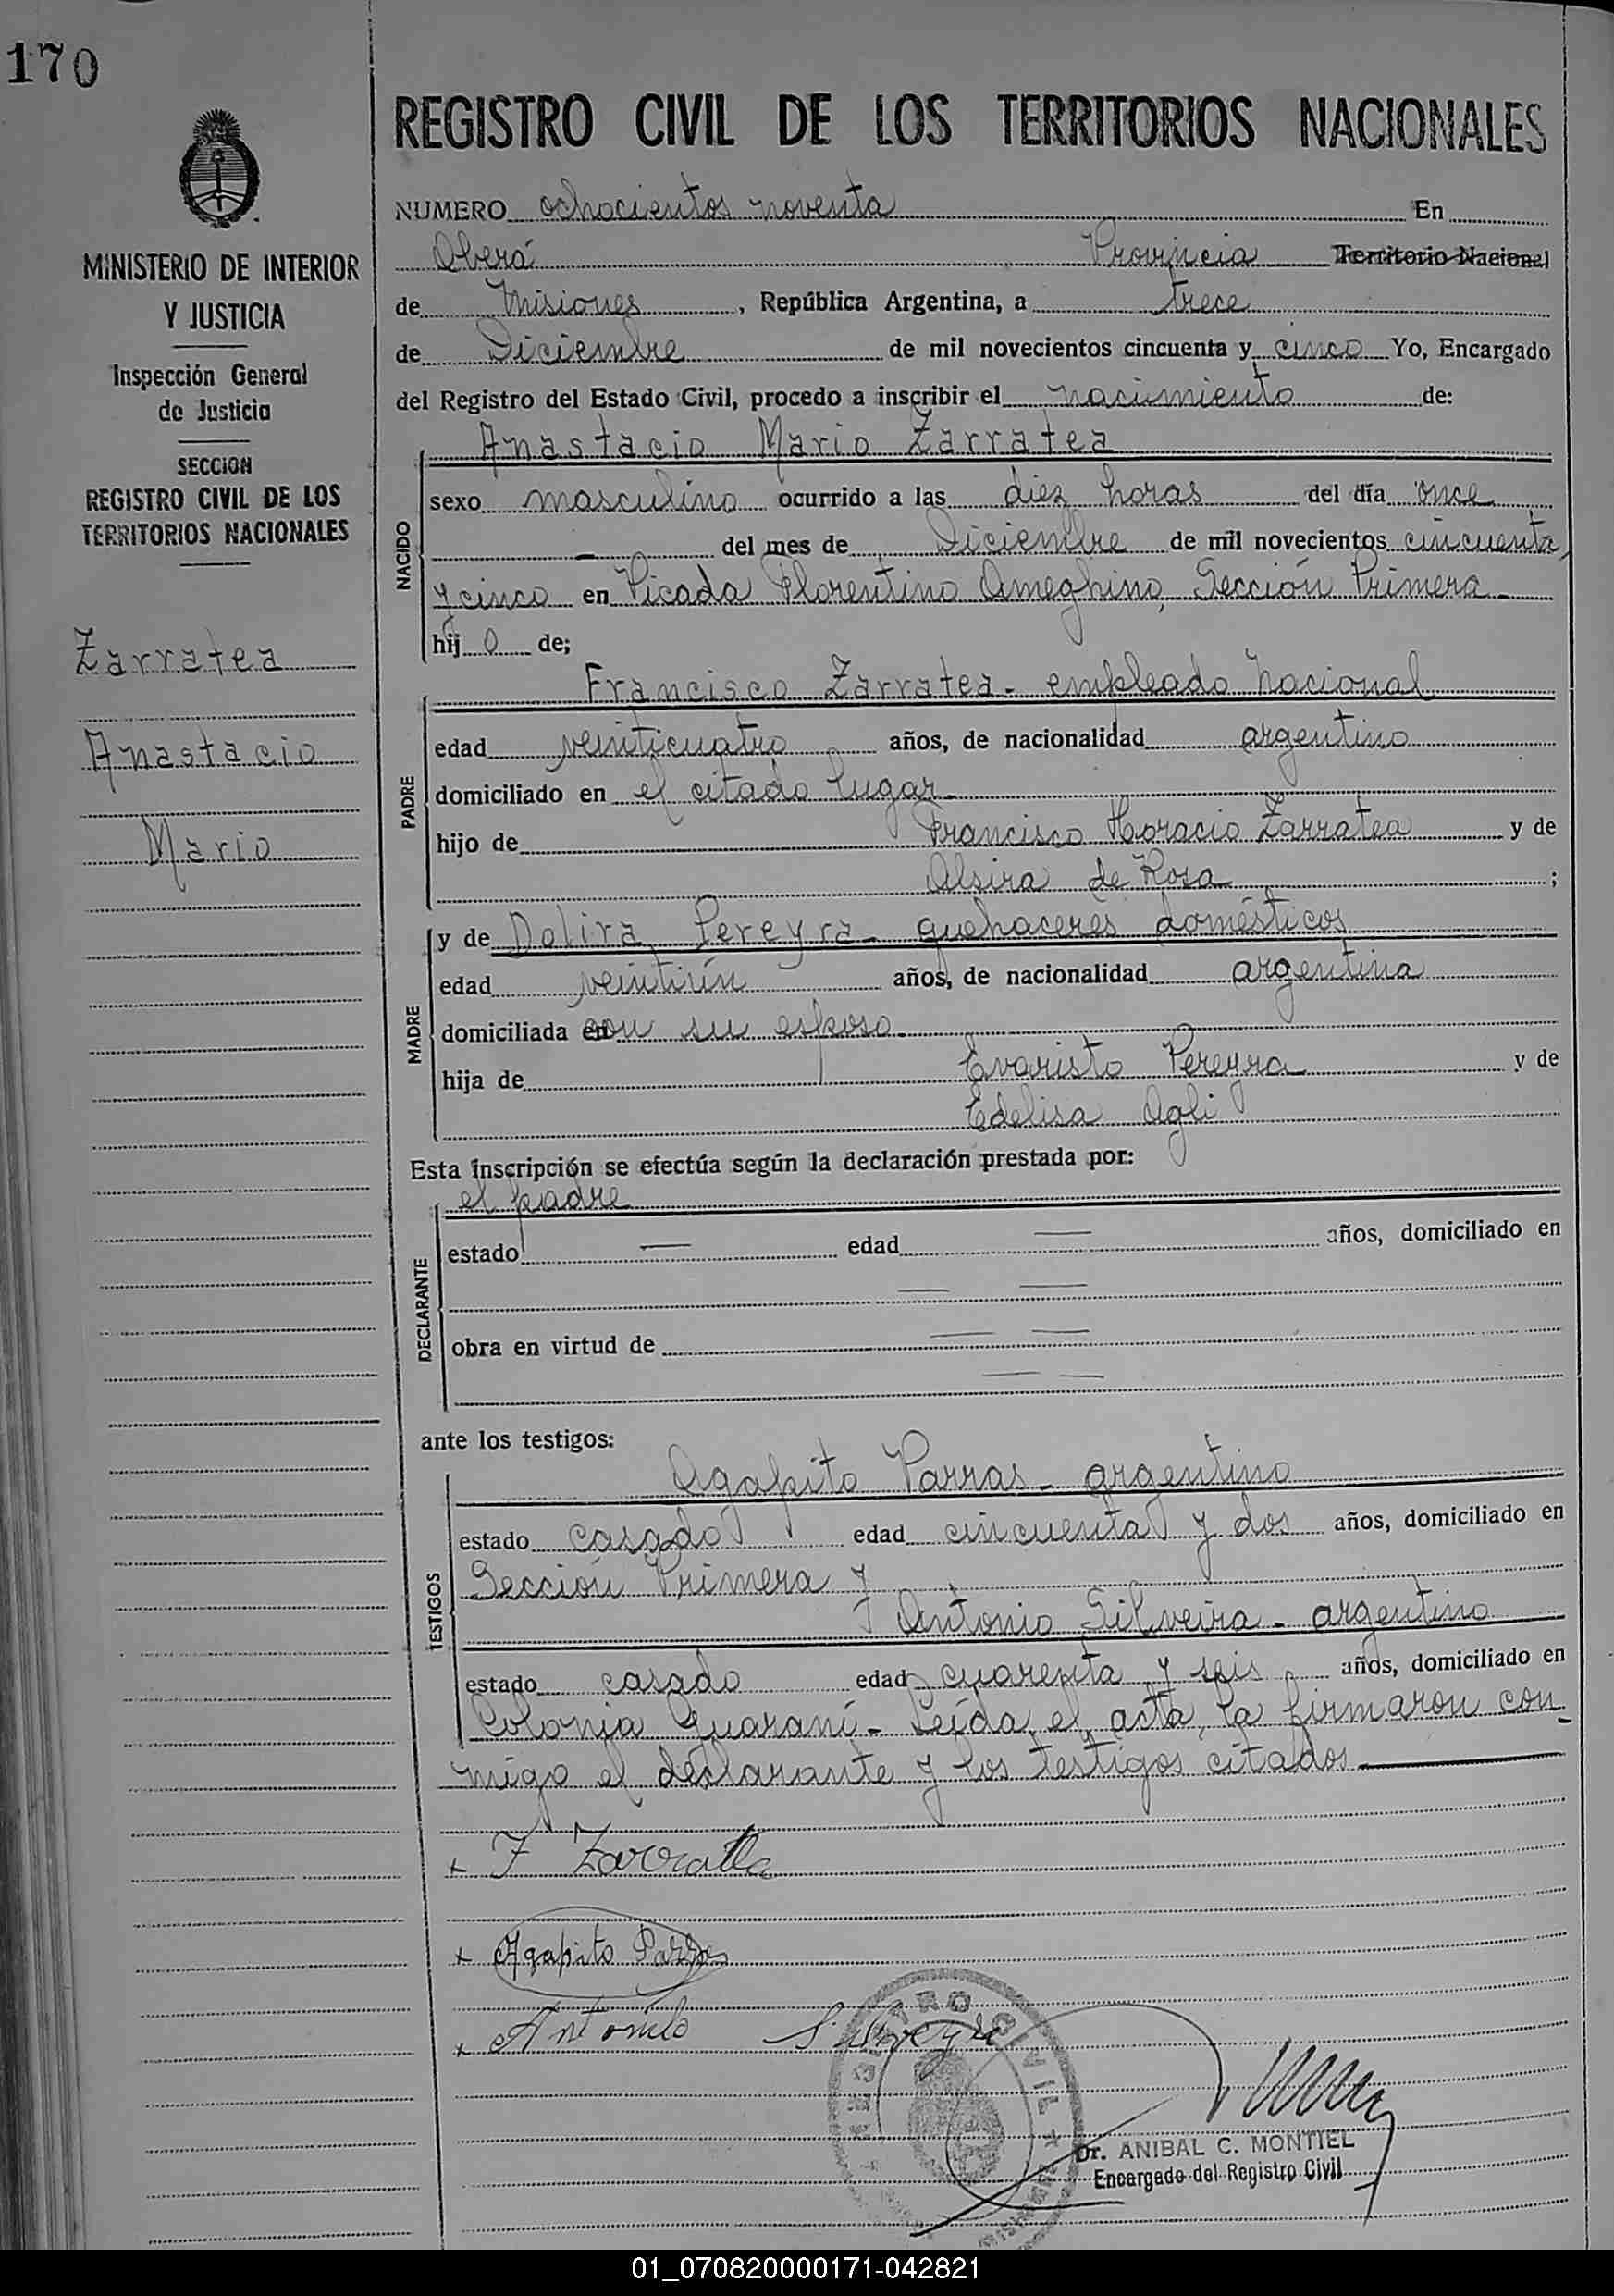 170
MINISTERIO DE INTERIOR
Y JUSTICIA
Inspección General
de Justicia
SECCION
REGISTRO CIVIL DE LOS
TERRITORIOS NACIONALES
Zarratea
Anastacio
Mario
REGISTRO CIVIL DE LOS TERRITORIOS NACIONALES
NUMERO ochocientos noventa En
Oberá Provincia Territorio Nacional
de Misiones, República Argentina, a trece
de Diciembre de mil novecientos cincuenta y cinco Yo, Encargado
del Registro del Estado Civil, procedo a inscribir el nacimiento de:
Anastacio Mario Zarratea
NACIDO
sexo masculino ocurrido a las diez horas del día once
— del mes de Diciembre de mil novecientos cincuenta
y cinco en Picada Florentino Ameghino, Sección Primera-
hij o de;
Francisco Zarratea- empleado Nacional
PADRE
edad veinticuatro años, de nacionalidad argentino
domiciliado en el citado lugar-
hijo de Francisco Horacio Zarratea y de
Alsira de Rosa ;
y de Dolira Pereyra- quehaceres domésticos
MADRE
edad veintiún años, de nacionalidad argentina
domiciliada en con su esposo-
hija de Evaristo Pereyra y de
Edelisa Ogli
Esta inscripción se efectúa según la declaración prestada por:
el padre
DECLARANTE
estado — edad — años, domiciliado en
— —
obra en virtud de — —
— —
ante los testigos:
Agapito Parras- argentino
TESTIGOS
estado casado edad cincuenta y dos años, domiciliado en
Sección Primera y
Antonio Silveira- argentino
estado casado edad cuarenta y seis años, domiciliado en
Colonia Guaraní- Leída el acta, la firmaron con-
migo el declarante y los testigos citados-
+ F Zarratea
+ Agapito Parras
+ Antonio Silveyra
REGISTRO CIVIL
Dr. ANIBAL C. MONTIEL
Encargado del Registro Civil
01_070820000171-042821